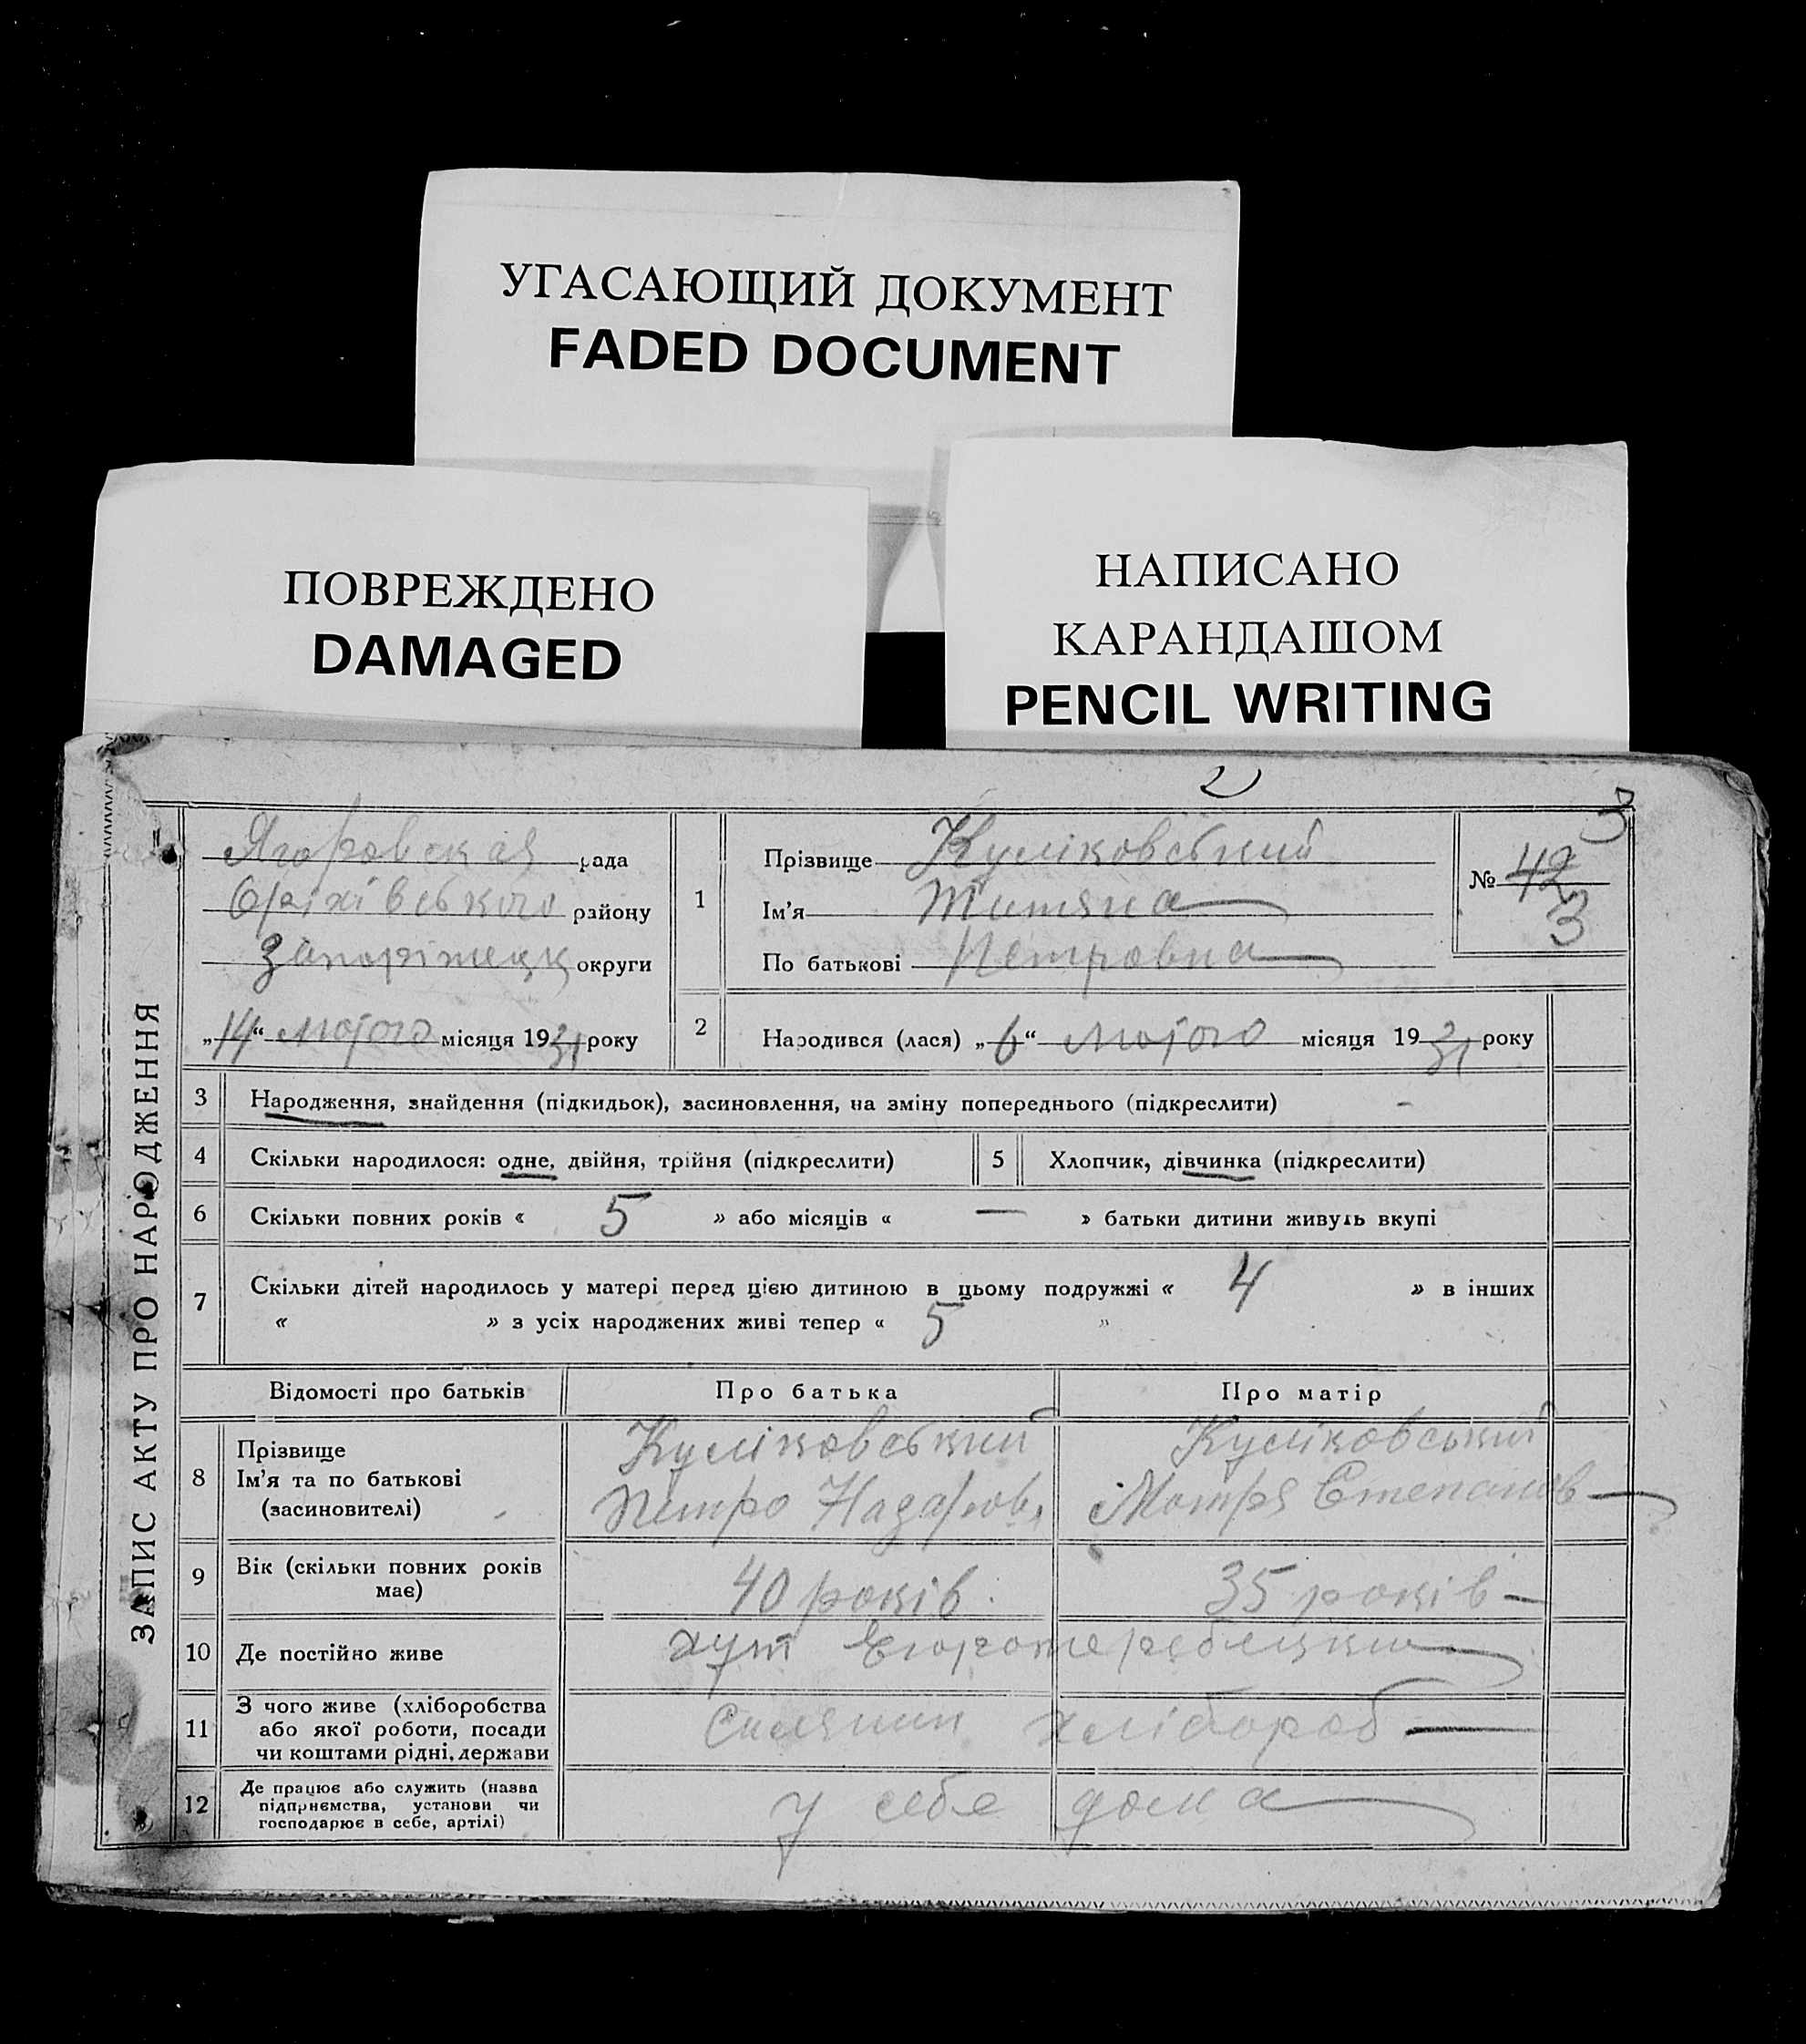 УГАСАЮЩИЙ ДОКУМЕНТ
FADED DOCUMENT
ПОВРЕЖДЕНО
DAMAGED
НАПИСАНО
КАРАНДАШОМ
PENCIL WRITING
2
3
ЗАПИС АКТУ ПРО НАРОДЖЕННЯ
Ягоровская рада
Оріхівського району
Запоріжецк округи
„14“ лютого місяця 1931 року
1
Прізвище Куліковський
Ім’я Титяна
По батькові Петровна
№ 42
3
2 Народився (лася) „6“ лютого місяця 1931 року
3 Народження, знайдення (підкидьок), засиновлення, на зміну попереднього (підкреслити) –
4 Скільки народилося: одне, двійня, трійня (підкреслити) 5 Хлопчик, дівчинка (підкреслити)
6 Скільки повних років « 5 » або місяців « — » батьки дитини живуть вкупі
7 Скільки дітей народилось у матері перед цією дитиною в цьому подружжі « 4 » в інших
« » з усіх народжених живі тепер « 5 »
Відомості про батьків Про батька Про матір
8 Прізвище
Ім’я та по батькові
(засиновителі)
Куліковський
Петро Назаров.
Куліковський
Мотря Степанов
9 Вік (скільки повних років
має)
40 років
35 років
10 Де постійно живе хут
11 З чого живе (хліборобства
або якої роботи, посади
чи коштами рідні, держави
Силянин хлібороб
12 Де працює або служить (назва
підприємства, установи чи
господарює в себе, артілі)
у себе дома